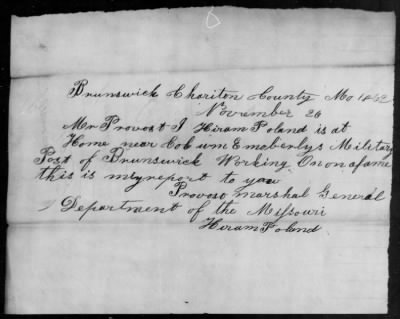 8
Brunswick Chariton County Mo 1862
November 26
Mr Provost I Hiram Poland is at
Home near Col um E moberlys Military
Post of Brunswick Working On on a farme
this is my report to you
Provost marshal General
Department of the Missouri
Hiram Poland